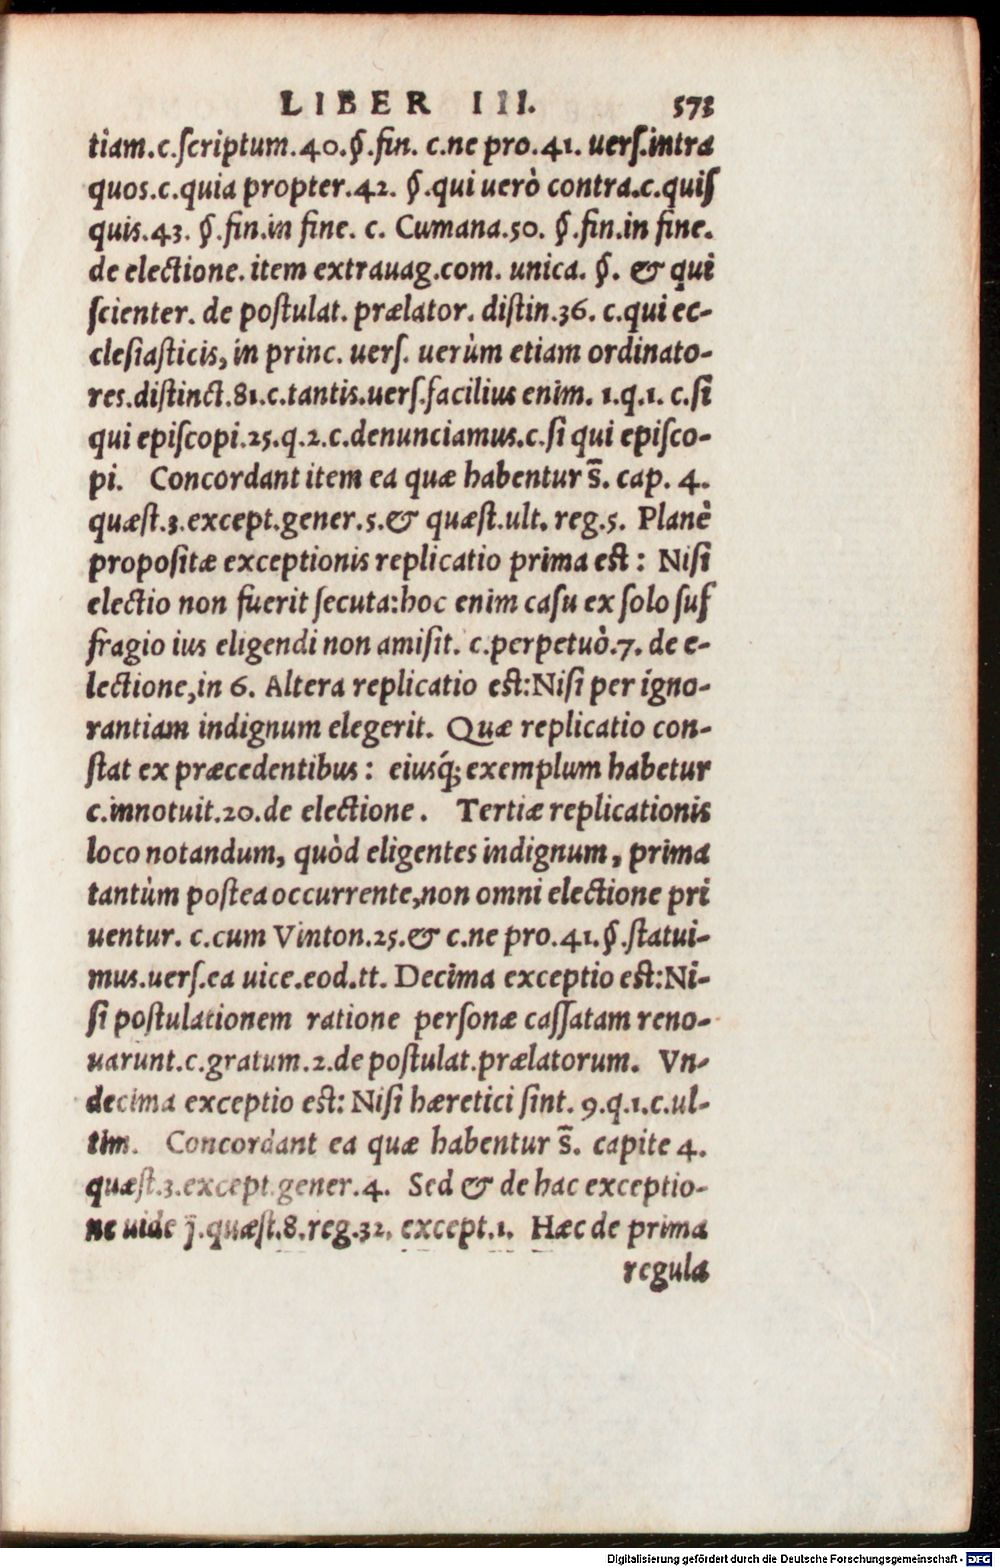 LIBER III. 573
tiam.c.ſcriptum.40.§.fin. c.ne pro.41. uerſ.intra
quos.c.quia propter.42. §.qui uerò contra.c.quiſ
quis.43. §.fin.in fine. c. Cumana.50. §.fin.in fine.
de electione. item extrauag.com. unica. §. & qui
ſcienter. de poſtulat. prælator. diſtin.36. c.qui ec-
cleſiaſticis, in princ. uerſ. uerùm etiam ordinato-
res.diſtinct.81.c.tantis.uerſ.facilius enim. 1.q.1. c.ſi
qui epiſcopi.25.q.2.c.denunciamus.c.ſi qui epiſco-
pi. Concordant item ea quæ habentur s̄. cap. 4.
quæſt.3.except.gener.5.& quæſt.ult. reg.5. Planè
propoſitæ exceptionis replicatio prima eſt: Niſi
electio non fuerit ſecuta:hoc enim caſu ex ſolo ſuf
fragio ius eligendi non amiſit. c.perpetuò.7. de e-
lectione,in 6. Altera replicatio eſt:Niſi per igno-
rantiam indignum elegerit. Quæ replicatio con-
ſtat ex præcedentibus: eiusq́; exemplum habetur
c.innotuit.20.de electione. Tertiæ replicationis
loco notandum, quòd eligentes indignum, prima
tantùm poſtea occurrente,non omni electione pri
uentur. c.cum Vinton.25.& c.ne pro.41.§.ſtatui-
mus.uerſ.ea uice.eod.tt. Decima exceptio eſt:Ni-
ſi poſtulationem ratione perſonæ caſſatam reno-
uarunt.c.gratum.2.de poſtulat.prælatorum. Vn-
decima exceptio eſt: Niſi hæretici ſint. 9.q.1.c.ul-
tim. Concordant ea quæ habentur s̄. capite 4.
quæſt.3.except.gener.4. Sed & de hac exceptio-
ne uide j̄.quæſt.8.reg.32. except.1. Hæc de prima
regula
Digitalisierung gefördert durch die Deutsche Forschungsgemeinschaft - DFG